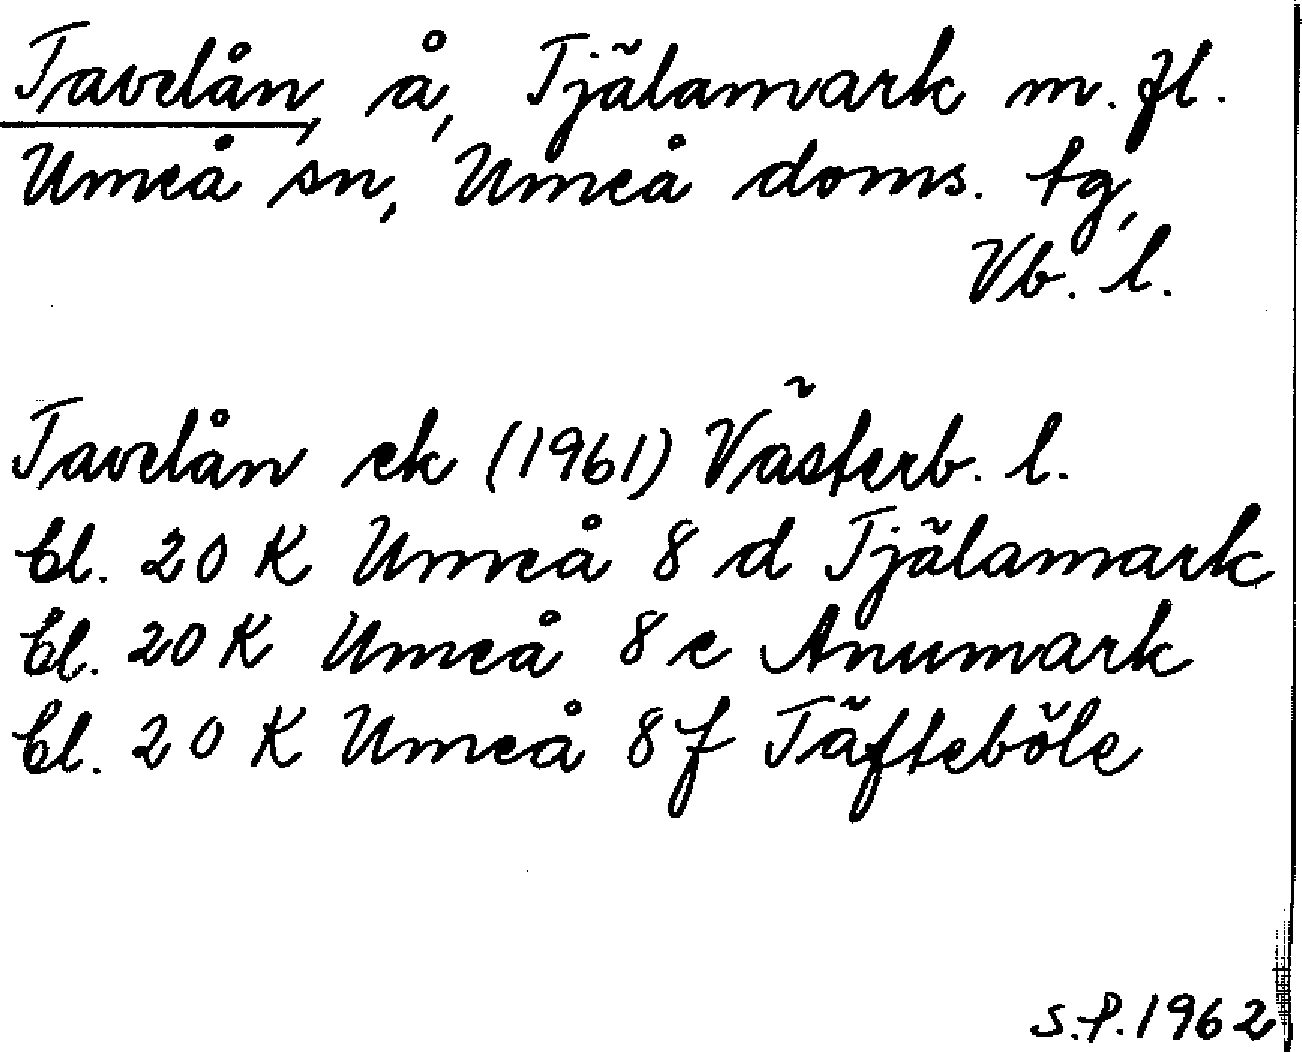 Tavelån, å, Tjälamark m. fl.
Umeå sn, Umeå doms. tg,
Vb. l.
Tavelån ek (1961) Västerb. l.
bl. 20 K Umeå 8 d Tjälamark
bl. 20 K Umeå 8 e Anumark
bl. 20 K Umeå 8 f Täfteböle
S.P. 1962